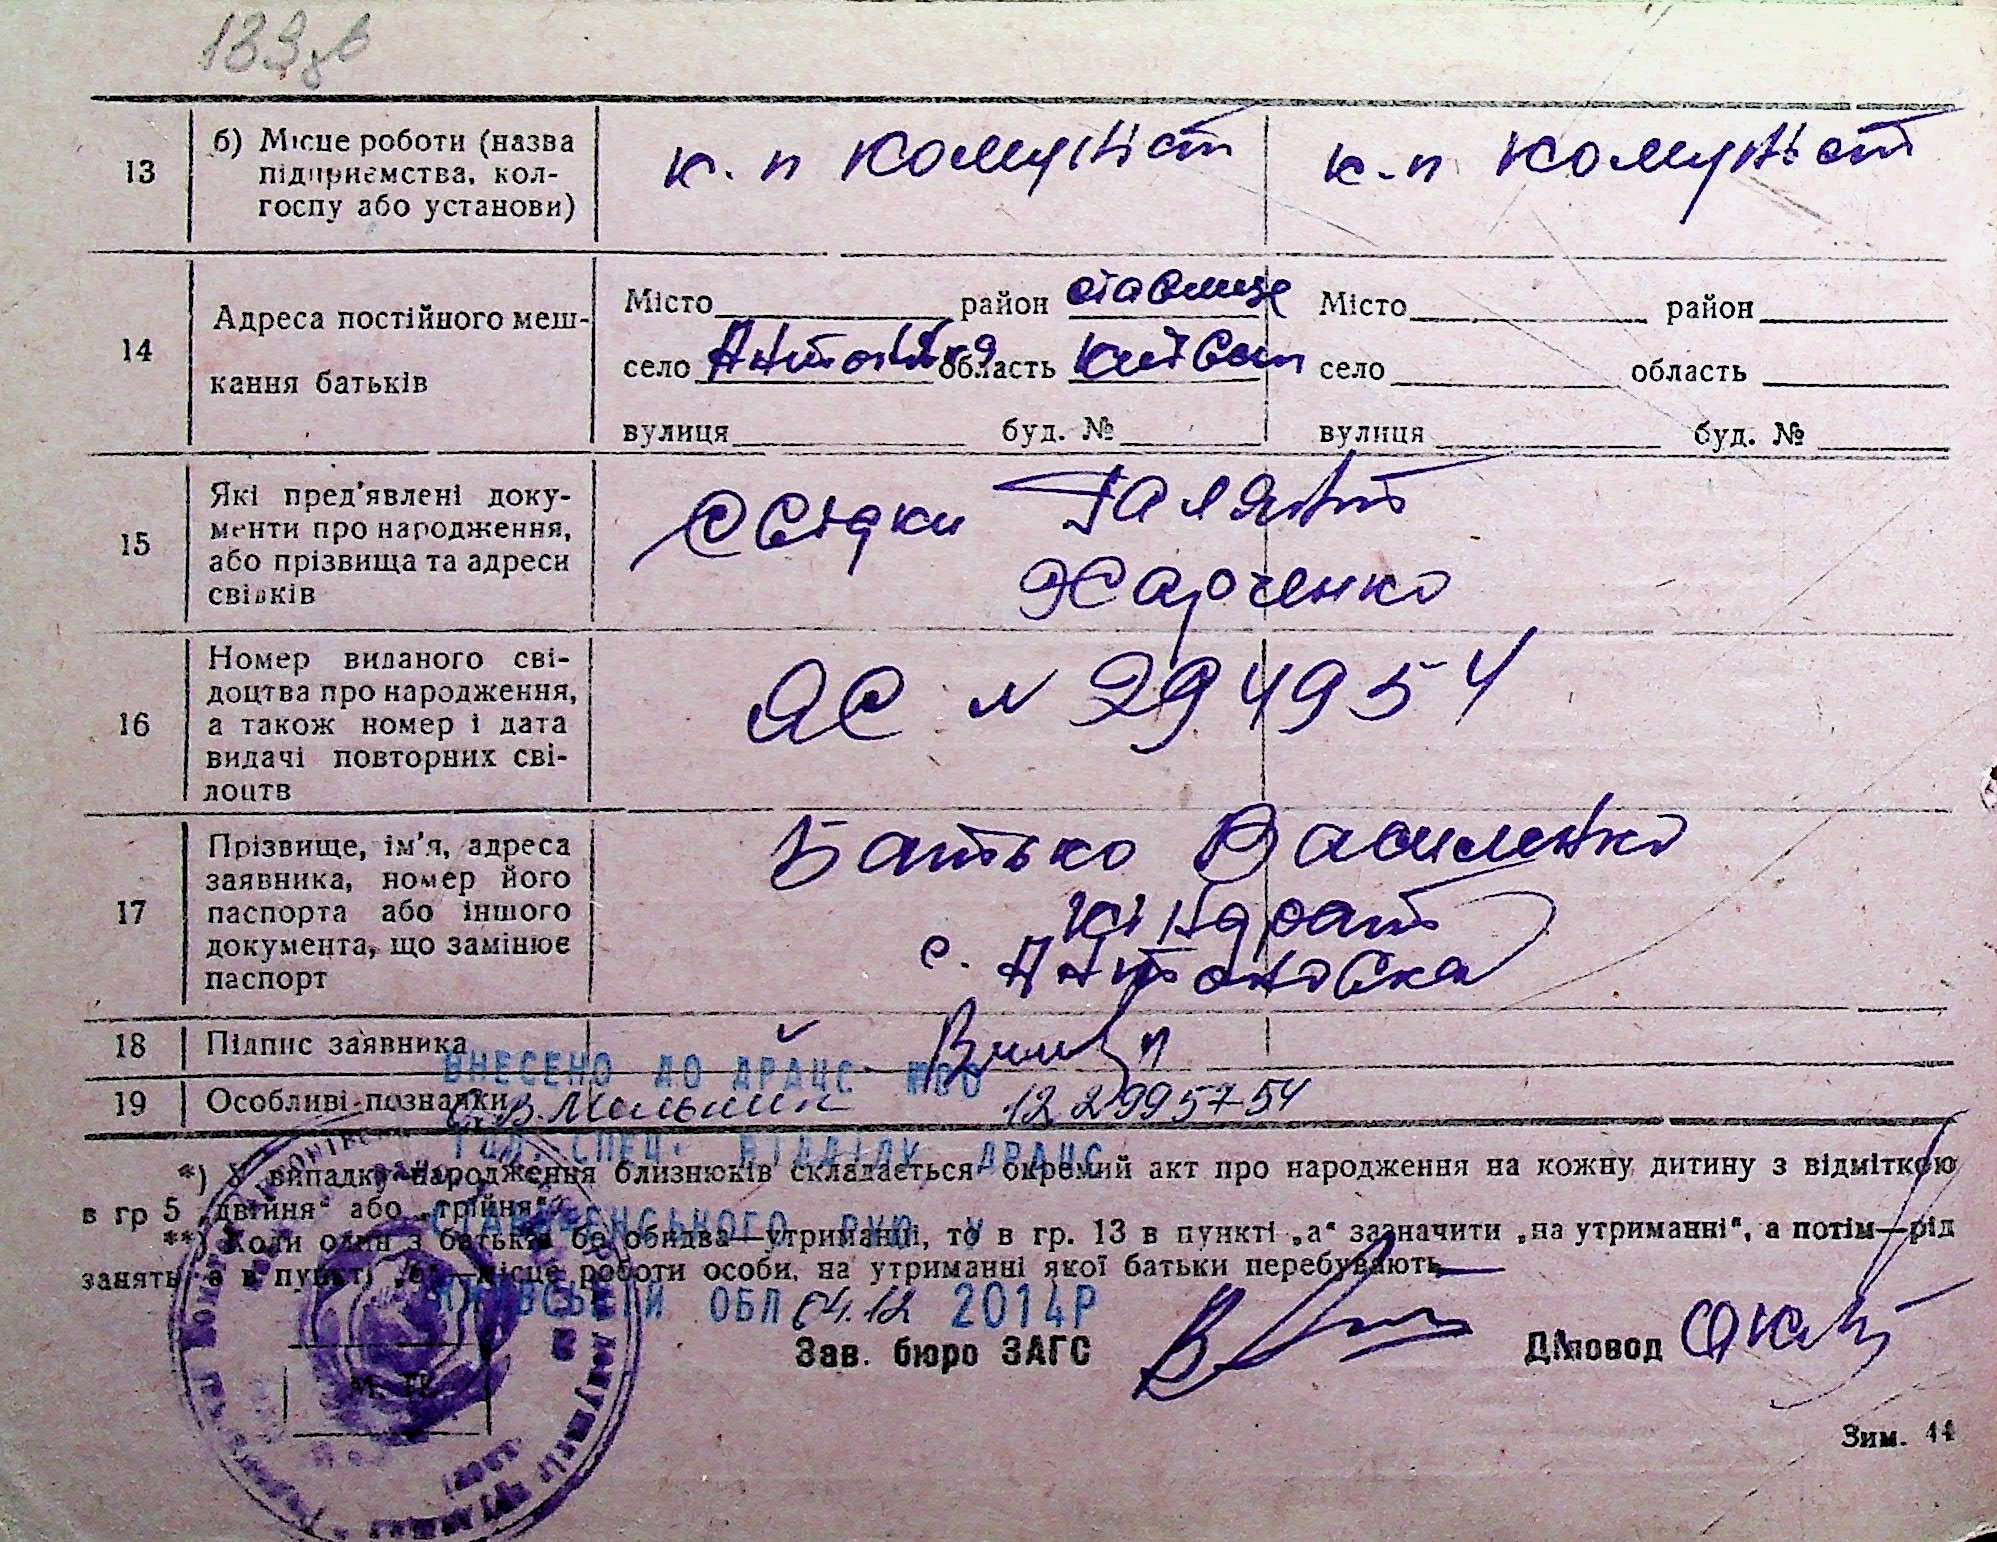 133 зв
13
б) Місце роботи (назва
підприємства, кол-
госпу або установи)
к. п комуніст
к. п комуніст
14
Адреса постійного меш-
кання батьків
Місто район ставище
село Антонівка область київськ
вулиця буд. №
Місто район
село область
вулиця буд. №
15
Які пред'явлені доку-
менти про народження,
або прізвища та адреси
свідків
Свідки Галянт
Харченко
16
Номер виданого сві-
доцтва про народження,
а також номер і дата
видачі повторних сві-
доцтв
ЯС № 294954
17
Прізвище, ім'я, адреса
заявника, номер його
паспорта або іншого
документа, що замінює
паспорт
Батько Василенко
Кіндрат
с. Антоновка
18
Підпис заявника
19
Особливі познавки
ВНЕСЕНО ДО ДРАЦС
С.В. Мельник 122995754
ГОЛ. СПЕЦ. ВІДДІЛУ ДРАЦС
*) У випадку народження близнюків складається окремий акт про народження на кожну дитину з відміткою
в гр 5 „двійня“ або „трійня“
СТАВИЩЕНСЬКОГО РУЮ У
**) Коли один з батьків бо обидва—утриманці, то в гр. 13 в пункті „а“ зазначити „на утриманні“, а потім—рід
занять, а в пункті „б“—місце роботи особи, на утриманні якої батьки перебувають
КИЇВСЬКІЙ ОБЛ 04.12 2014Р
Зав. бюро ЗАГС
Діловод
М. П.
Зим. 44